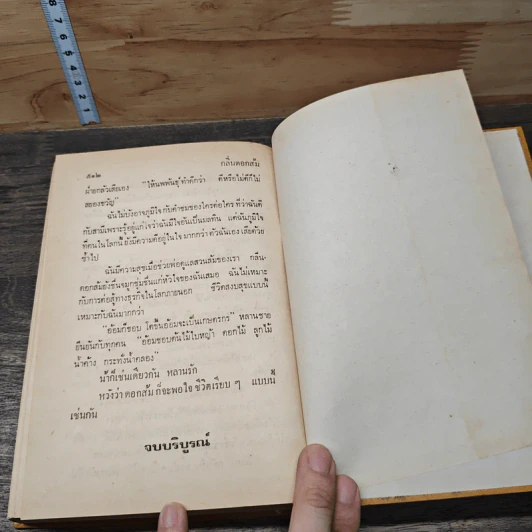 ๕๑๒
กลิ่นดอกส้ม
ฝ่ายกลัวเสียเอง "ให้นพพันธุ์ทำดีกว่า ดีหรือไม่ดีก็ไม่
สยองขวัญ"
ฉันไม่บังอาจภูมิใจ กับคำชมของใครต่อใคร ที่ว่าฉันดี
กับสามีเพราะรู้อยู่แก่ใจว่าฉันมีใจอันเป็นมลทิน แต่ฉันภูมิใจ
ที่คนในโลกนี้ ยังมีความดีอยู่ในใจ มากกว่า ตัวฉันเอง เสียด้วย
ซ้ำไป
ฉันมีความสุขเมื่อช่วยพ่อดูแลสวนส้มของเรา กลิ่น-
ดอกส้มยังชื่นจมูกชุ่มชื่นแก่หัวใจของฉันเสมอ ฉันไม่เหมาะ
กับการต่อสู้ทางธุรกิจในโลกภายนอก ชีวิตสงบสุขแบบนี้
เหมาะกับฉันมากกว่า
"อ้อมก็ชอบ โตขึ้นอ้อมจะเป็นเกษตรกร" หลานชาย
ยืนยันกับทุกคน "อ้อมชอบต้นไม้ใบหญ้า ดอกไม้ ลูกไม้
น้ำค้าง กระทั่งน้ำคลอง"
น้าก็เช่นเดียวกัน หลานรัก
หวังว่า ดอกส้ม ก็จะพอใจ ชีวิตเรียบ ๆ แบบนี้
เช่นกัน
จบบริบูรณ์
8
7
6
5
4
3
2